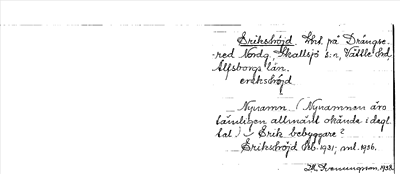 Erikshöjd, lht. på Drängse-
red Nordg., Skallsjö s:n, Vättle hd,
Älfsborgs län.
erekshöjd
Nynamn. (Nynamnen äro
tämligen allmänt okända i dagl.
tal.) – Erik bebyggare?
Erikshöjd kb. 1931; mt. 1936.
1938.